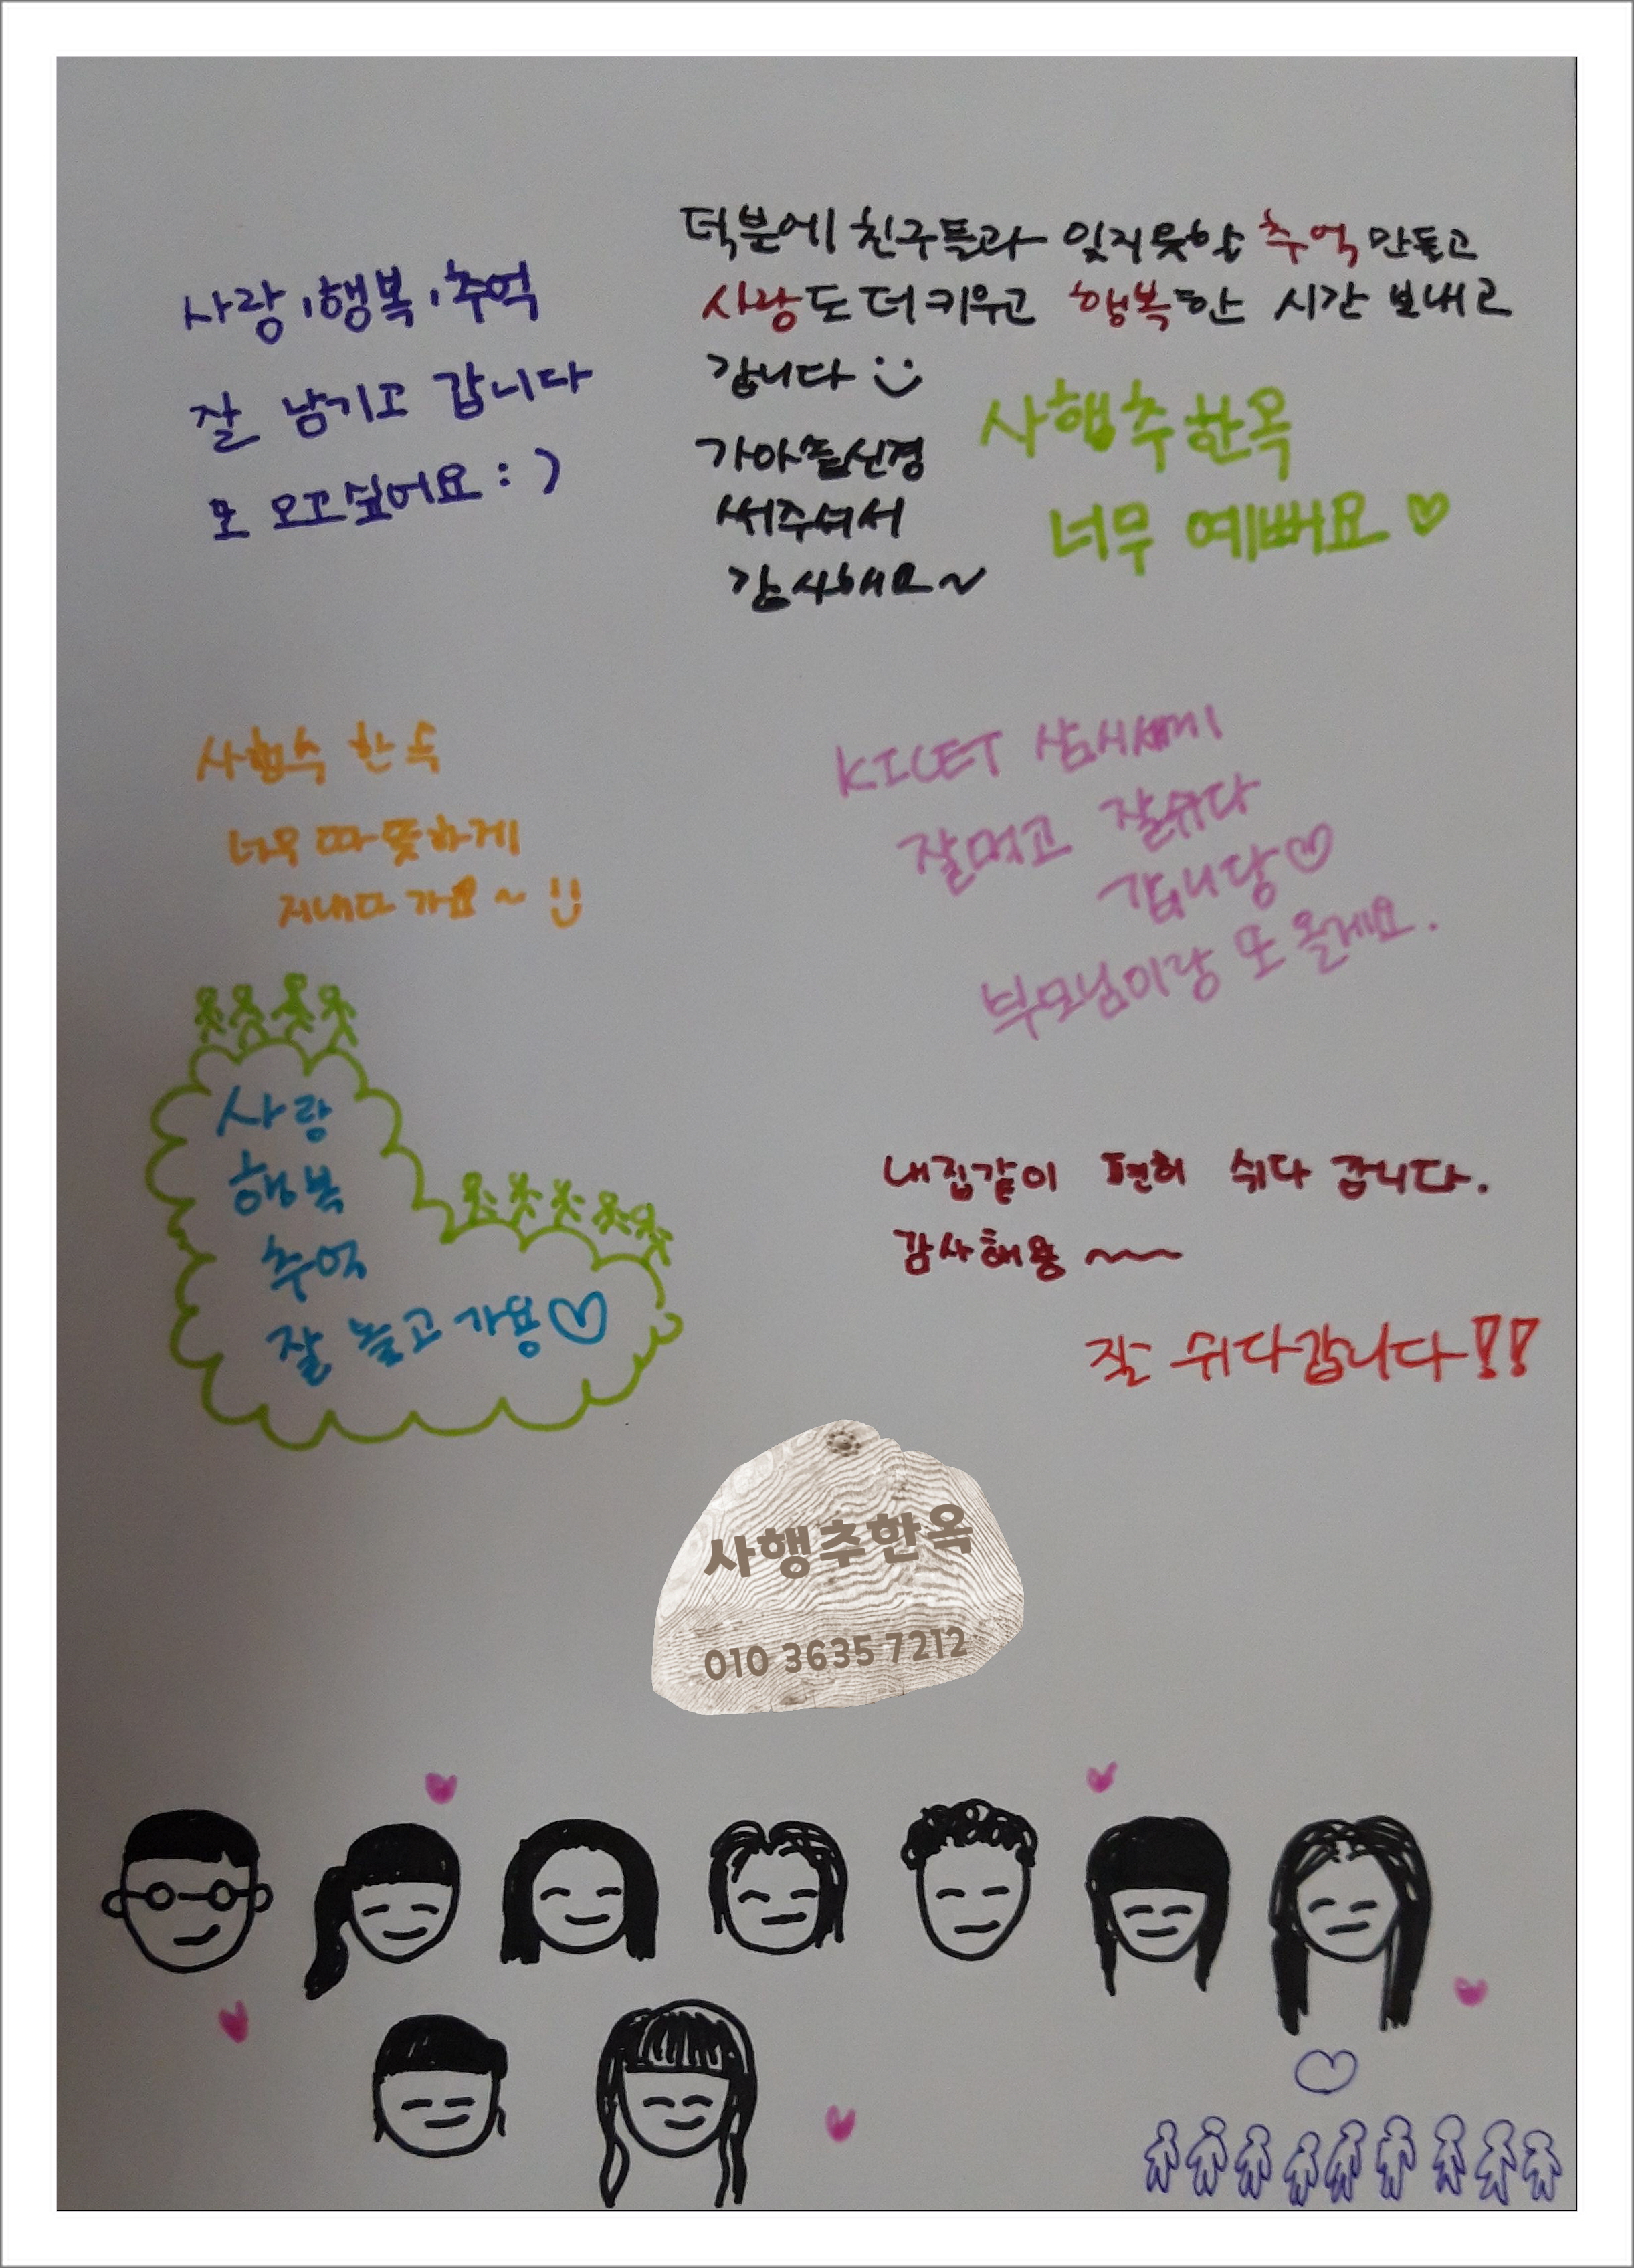 사랑, 행복, 추억
잘 남기고 갑니다
또 오고싶어요 : )
덕분에 친구들과 잊지못할 추억 만들고
사랑도 더 키우고 행복한 시간 보내고
갑니다
신경
써주셔서
감사해요~
사행추한옥
너무 예뻐요 ♡
한옥
너무 따뜻하게
지내다 가요~
KICET 삼시세끼
잘먹고 잘쉬다
갑니당♡
부모님이랑 또 올게요.
사랑
행복
추억
잘 놀고 가용♡
내집같이 편히 쉬다 갑니다.
감사해용 ~~
잘 쉬다갑니다!!
사행추한옥
010 3635 7212